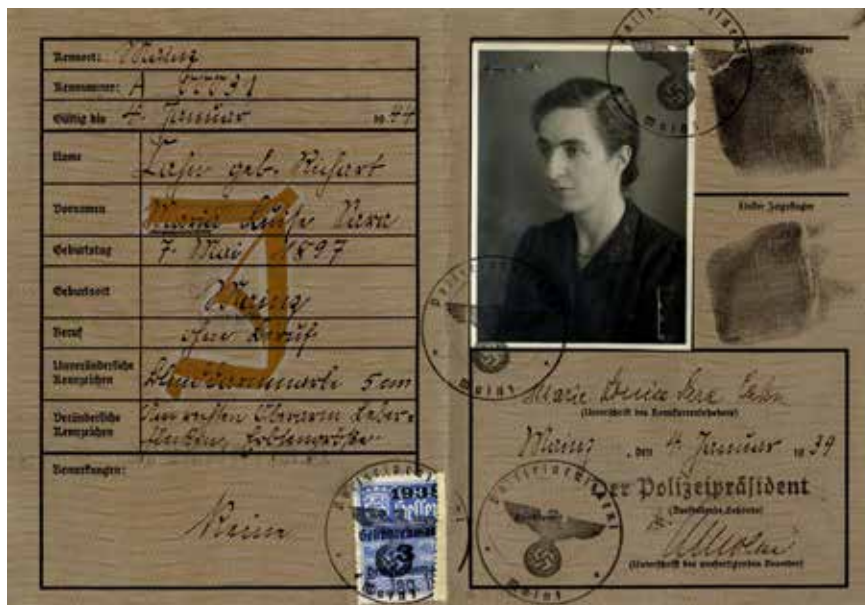 Kennort: Mainz
Kennummer: A 00031
Gültig bis 4. Januar 1944
Name
geb.
Vornamen
Maria Luise Sara
Geburtstag 7. Mai 1897
Geburtsort
Mainz
Beruf ohne Beruf
Unveränderliche
Kennzeichen
Blinddarmnarbe 5 cm
Veränderliche
Kennzeichen
Am rechten Oberarm Leber-
Erbsengröße
Bemerkungen:
Keine
J
1938
Zeigefinger
Linker Zeigefinger
Marie Louise Sara
(Unterschrift des Kennkarteninhabers)
Mainz, den 4. Januar 1939
Der Polizeipräsident
(Ausstellende Behörde)
(Unterschrift des ausfertigenden Beamten)
Polizeipräsident
Mainz